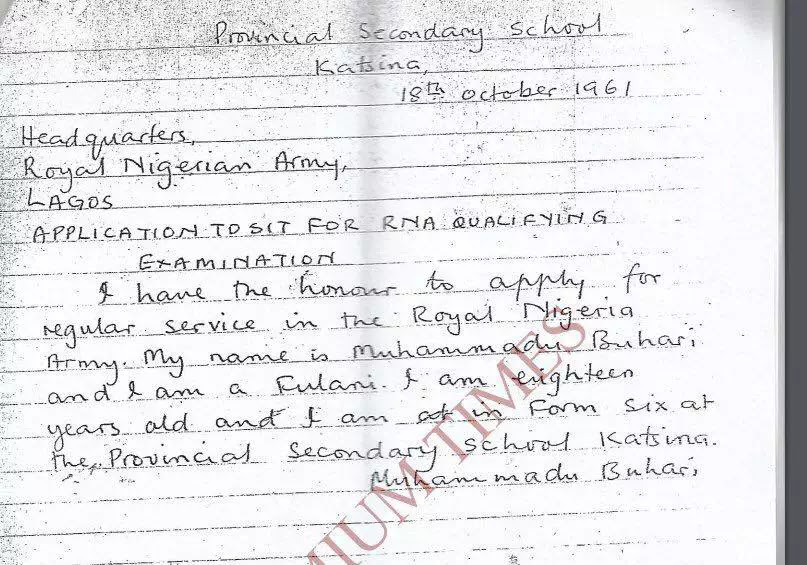 Provincial Secondary School
Katsina,
18th October 1961
Headquarters,
Royal Nigerian Army,
LAGOS
APPLICATION TO SIT FOR RNA QUALIFYING
EXAMINATION
I have the honour to apply for
regular service in the Royal Nigeria
Army. My name is Muhammadu Buhari
and I am a Fulani. I am eighteen
years old and I am in Form Six at
the Provincial Secondary School Katsina.
Muhammadu Buhari
MIUM TIMES